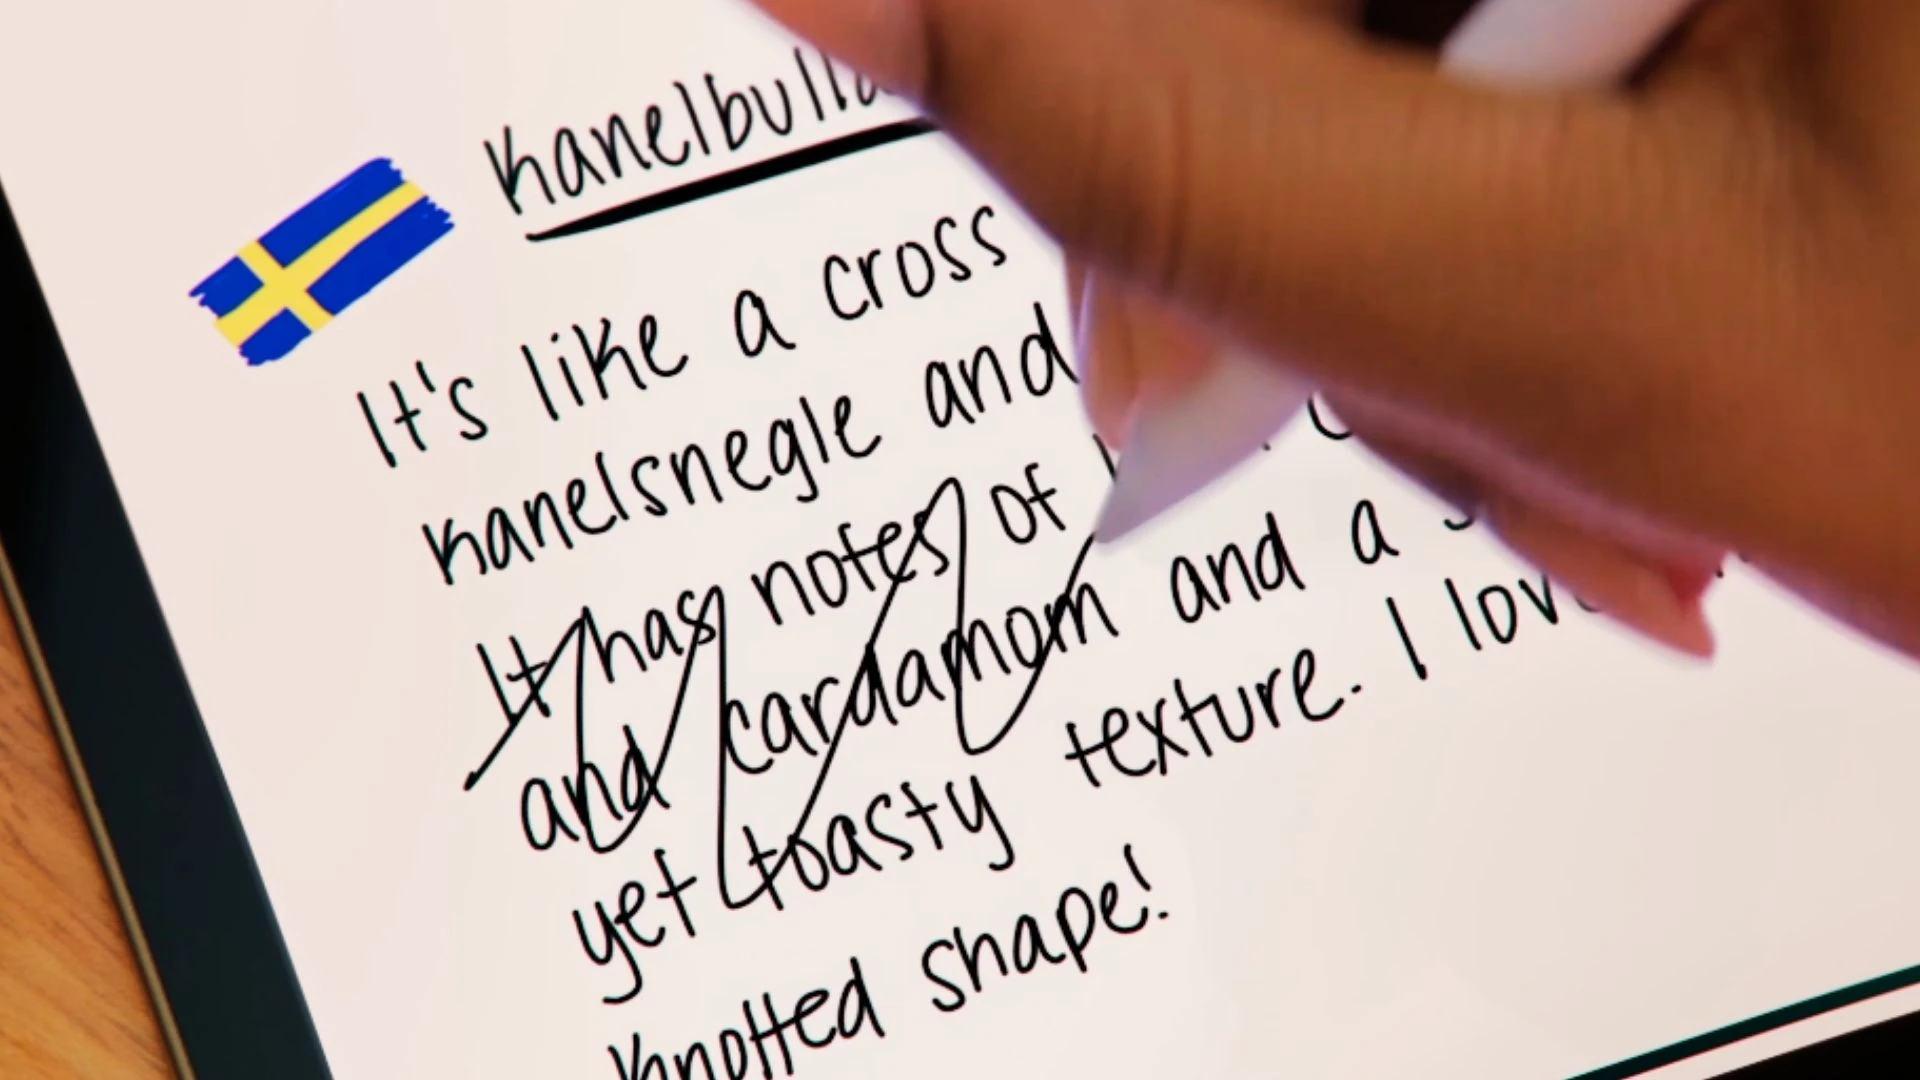 It's like a cross
kanelsnegle and
It has notes of
and cardamom and a
yet toasty texture. I
knotted shape!